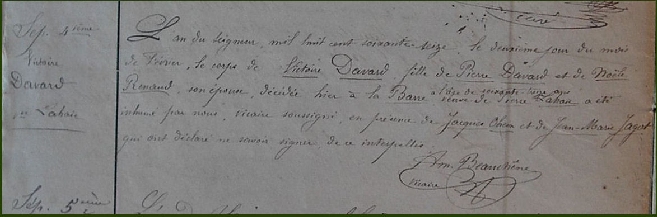 Curé
Sep. 4ième
Victoire
Davard
Ve Labaie
L'an du Seigneur, mil huit cent soixante seize, le deuxième jour du mois
de Février, le corps de Victoire Davard fille de Pierre Davard et de Noële
Renaud, son épouse, décédée hier à la Barre à l'âge de soixante-treize ans
veuve de Pierre Labaie a été
inhumé par nous, vicaire soussigné, en présence de Jacques et de Jean-Marie
qui ont déclaré ne savoir signer de ce interpellés.
Am. Beauchêne
vicaire
Sep. 5ième